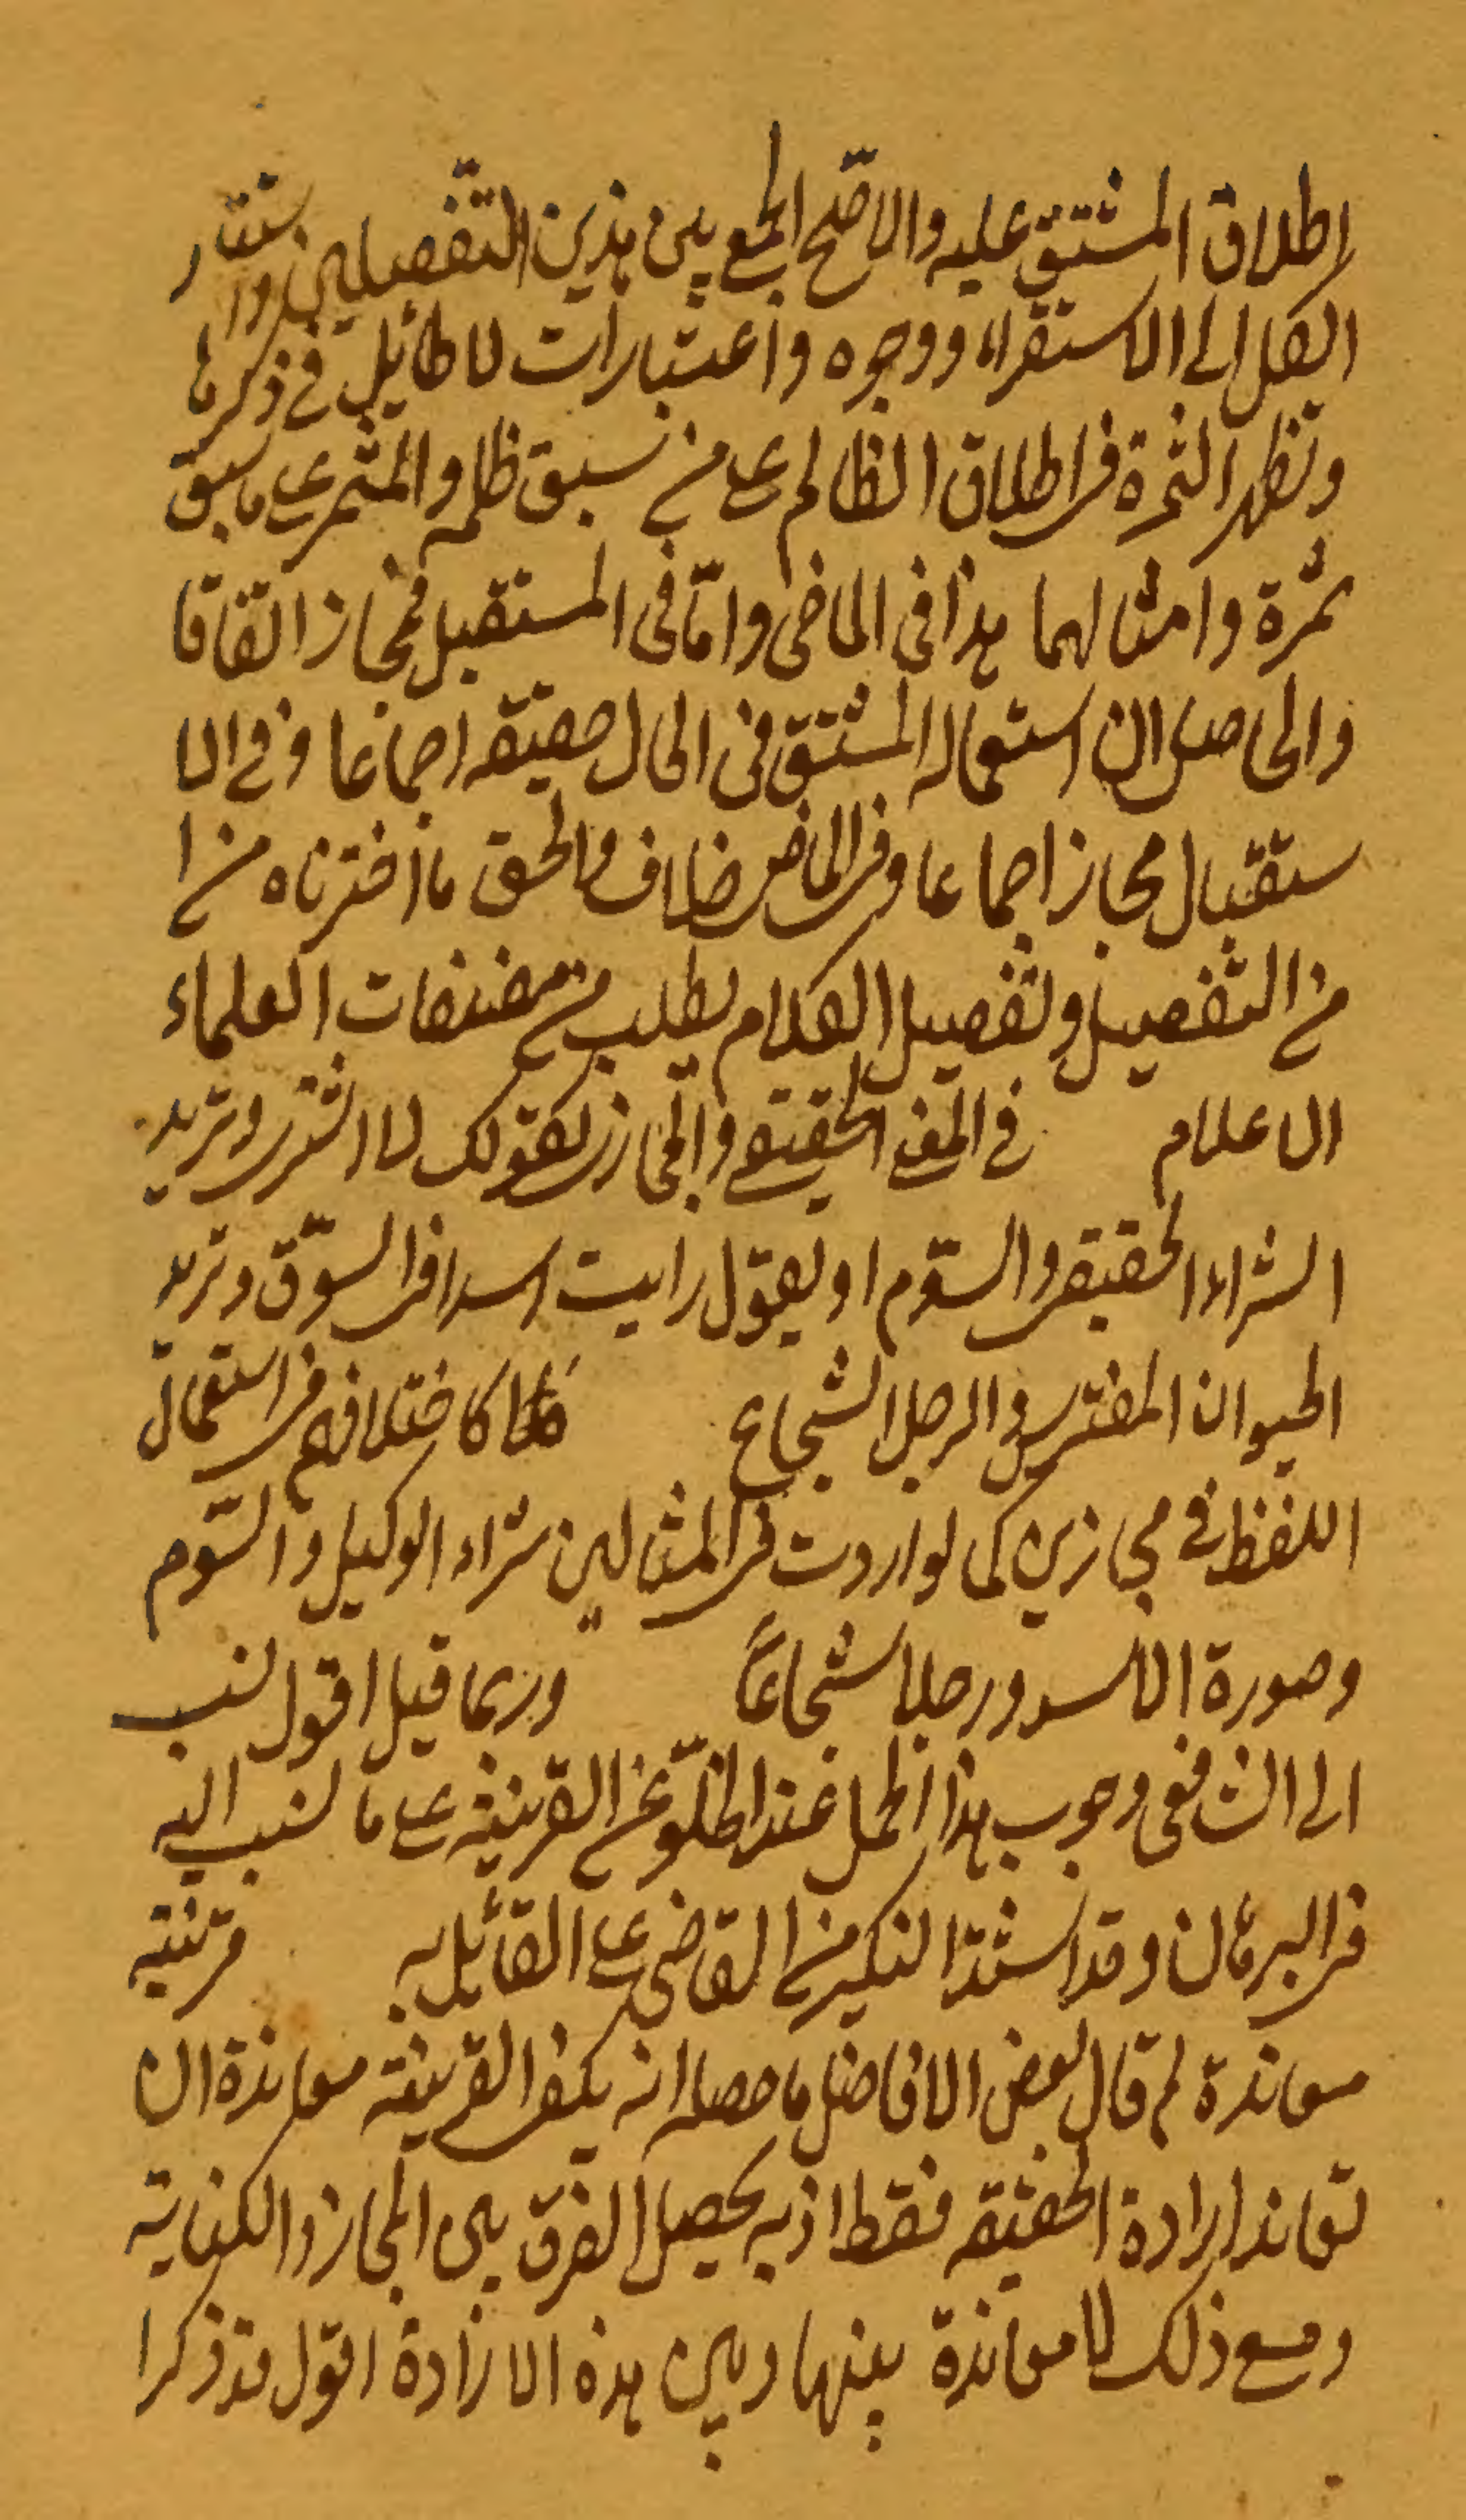 اطلاق المشتق عليه والاصح الجمع بين هذين التفصيلين
الكل الى الاستقراء ووجوه واعتبارات لا طائل في ذكرها
وتظهر الثمرة في اطلاق الظالم على من سبق ظلمه والمثمر على ما سبق
ثمرة وامثالهما هذا في الماضي واما في المستقبل فمجاز اتفاقا
والحاصل ان استعمال المشتق في الحال حقيقة اجماعا وفي الا
ستقبال مجاز اجماعا وفي الماضي خلاف والحق ما اخترناه من ا
من التفصيل وتفصيل الكلام يطلب من مصنفات العلماء
الاعلام في المعنى الحقيقي والمجازي كقولك لا اشتري وتريد
الشراء الحقيقي والسّوم او يقول رايت اسدا في السّوق وتريد
الحيوان المفترس والرجل الشجاع كاختلافهم في استعمال
اللفظ في مجازين كما لو اردت في المثالين شراء الوكيل والسّوم
وصورة الاسد ورجلا شجاعًا وربما قيل اقول نسب
الى الشافعي وجوب هذا الحمل عند الخلوّ عن القرينة على ما نسب اليه
في البرهان وقد اشتدّ النكير من القاضي على القائل به قرينة
معاندة ثم قال بعض الافاضل ما حصله انه يكفي القرينة معاندة ان
تعاند ارادة الحقيقة فقط اذ به يحصل الفرق بين المجاز والكناية
ومع ذلك لا معاندة بينها وبين هذه الارادة اقول قد ذكرا